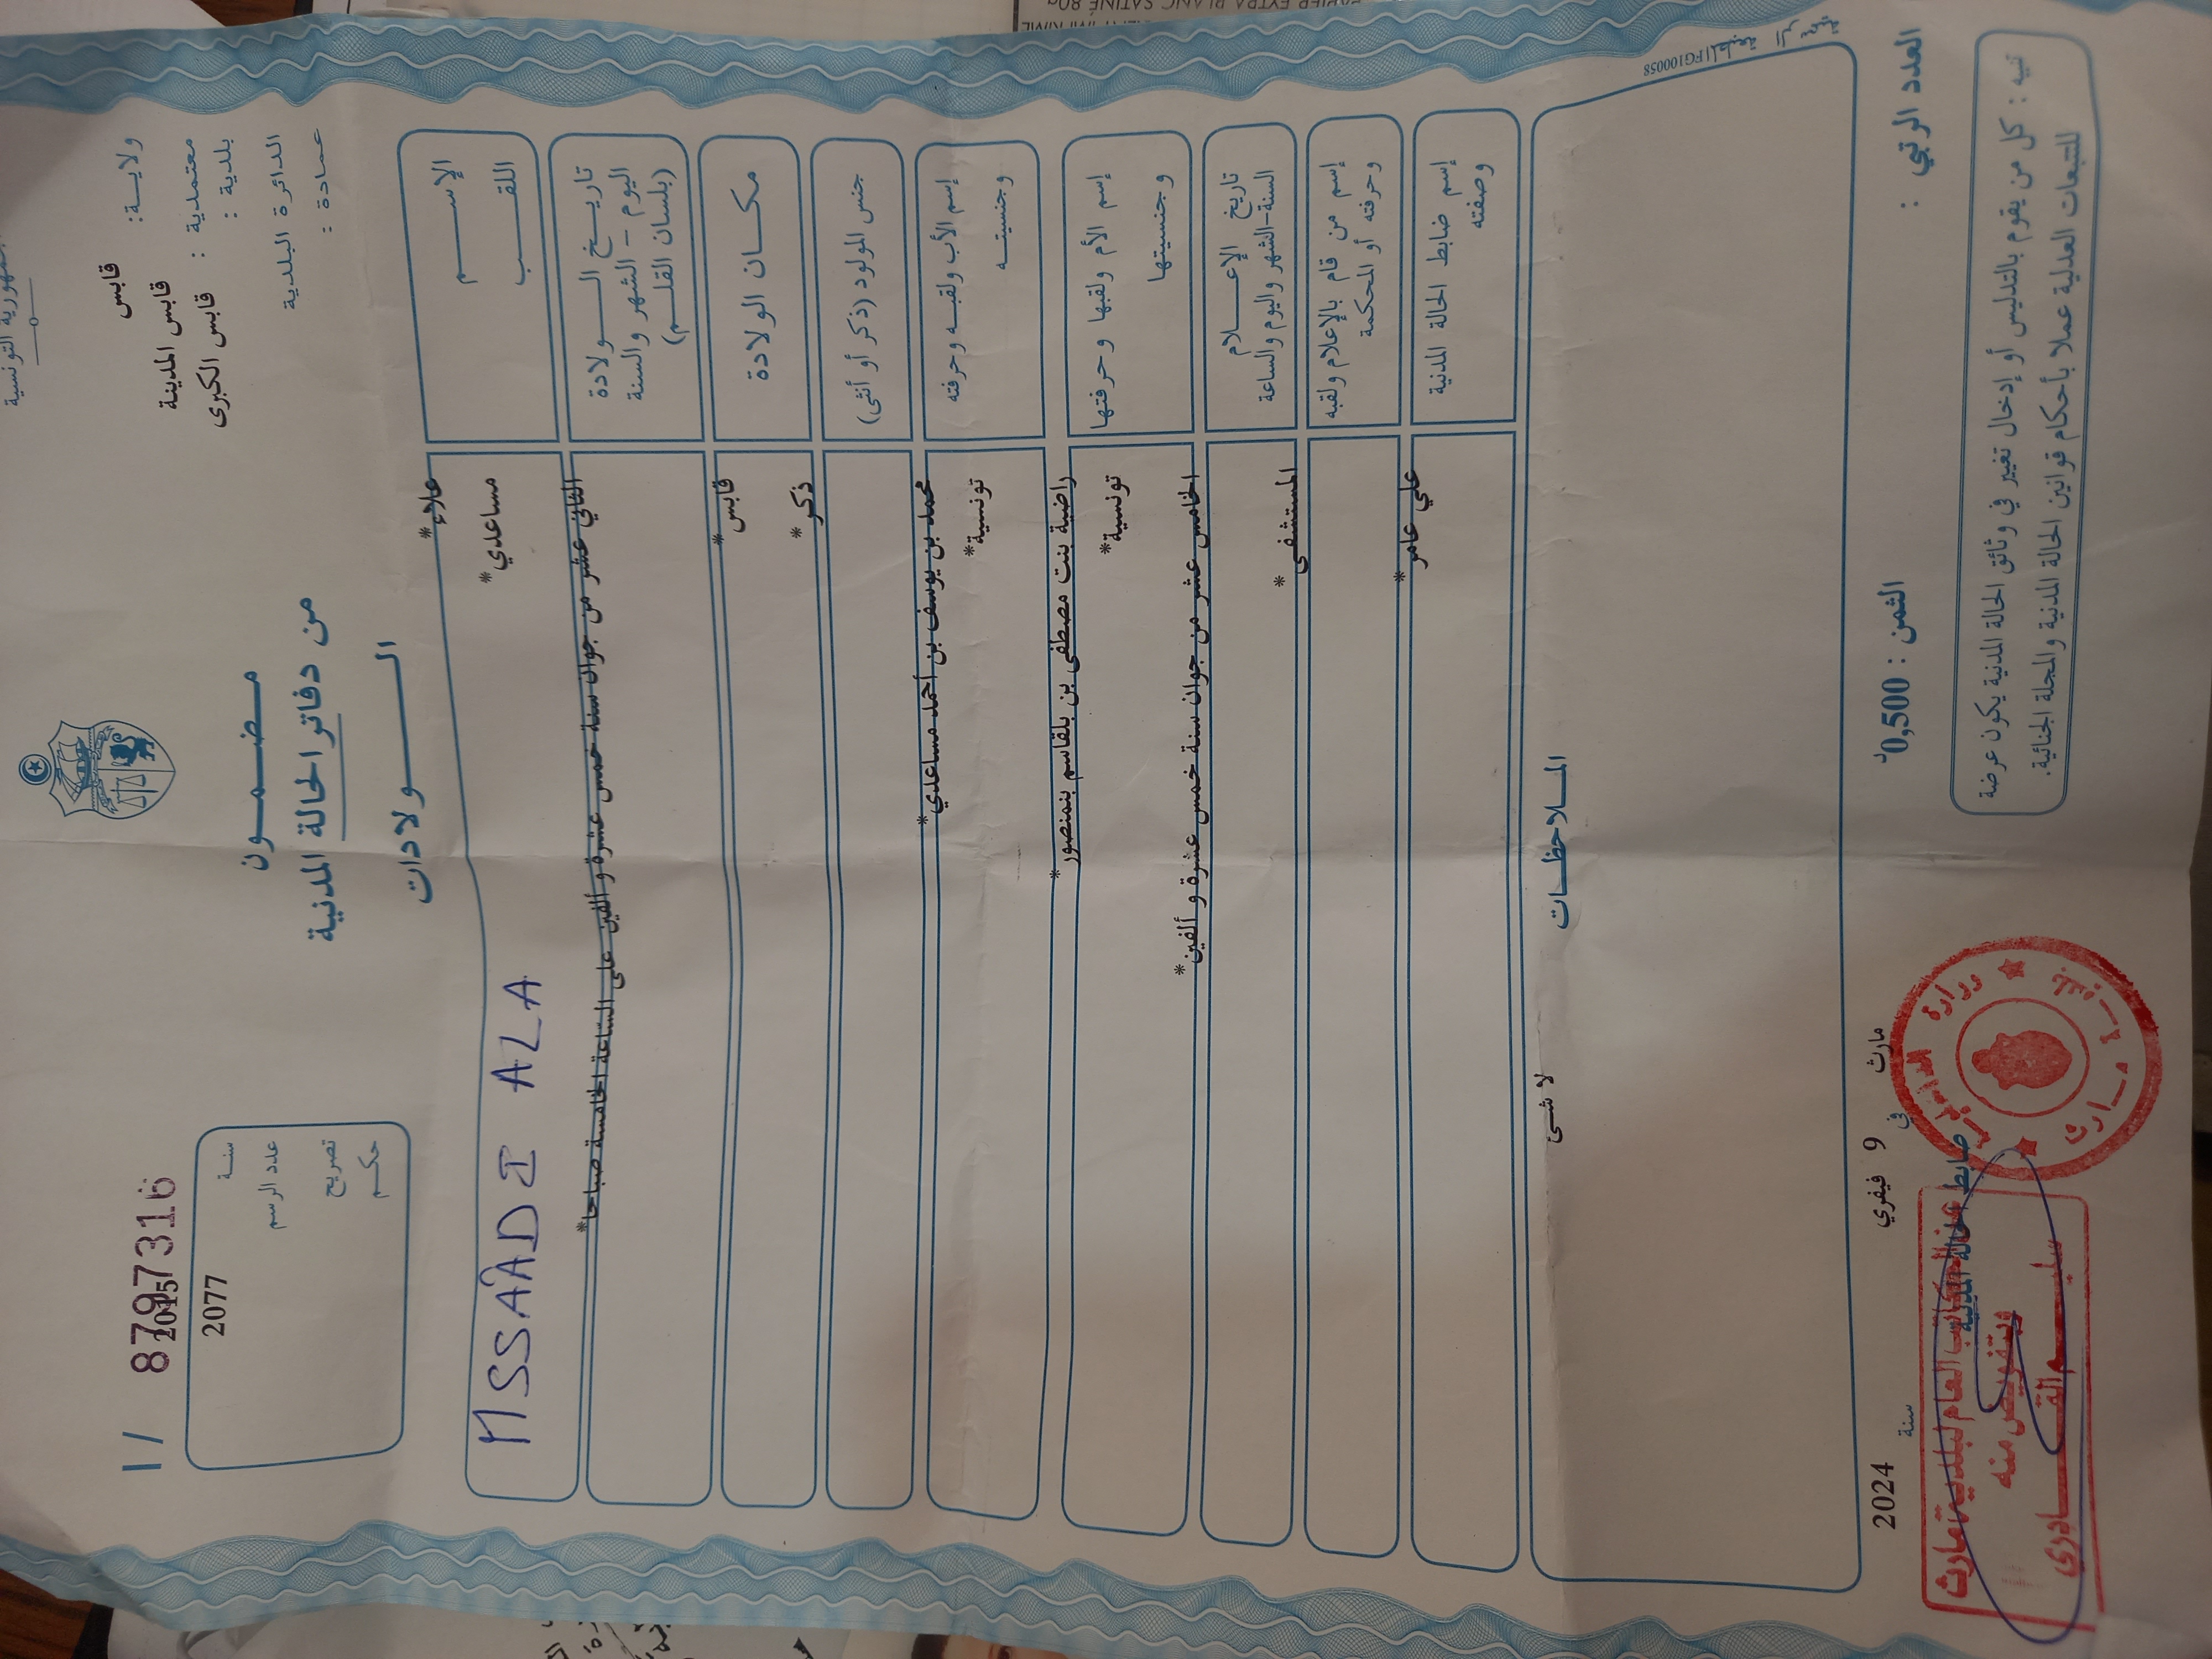 الجمهورية التونسية
ولاية: قابس
معتمدية : قابس المدينة
بلدية : قابس الكبرى
الدائرة البلدية
عمادة :
مضمون
من دفاتر الحالة المدنية
الولادات
I / 8797316
2015 سنة
2077 عدد الرسم
تصريح
حكم
الإسم علاء*
اللقب مساعدي*
MSSAADI ALA
تاريخ الولادة
اليوم - الشهر والسنة
(بلسان القلم)
الثاني عشر من جوان سنة خمس عشرة و ألفين على الساعة الخامسة صباحا*
مكان الولادة قابس*
جنس المولود (ذكر أو أنثى) ذكر*
إسم الأب ولقبه وحرفته محمد بن يوسف بن أحمد مساعدي*
وجنسيته تونسية*
إسم الأم ولقبها وحرفتها راضية بنت مصطفى بن بلقاسم بنمنصور*
وجنسيتها تونسية*
تاريخ الإعلام
السنة-الشهر واليوم والساعة
الخامس عشر من جوان سنة خمس عشرة و ألفين*
إسم من قام بالإعلام ولقبه
وحرفته أو المحكمة
المستشفى*
إسم ضابط الحالة المدنية
وصفته
علي عامر*
الملاحظات
لا شئ
FG100058
العدد الرتبي :
الثمن : 0,500د
مارث في 9 فيفري سنة 2024
ضابط الحالة المدنية
تنبيه : كل من يقوم بالتدليس أو إدخال تغيير في وثائق الحالة المدنية يكون عرضة
للتتبعات العدلية عملا بأحكام قوانين الحالة المدنية والمجلة الجنائية.
وزارة الداخلية
بلدية مارث
عن الكاتب العام لبلدية مارث
وبتفويض منه
سليم القادري
PAPIER EXTRA BLANC SATINÉ 80g